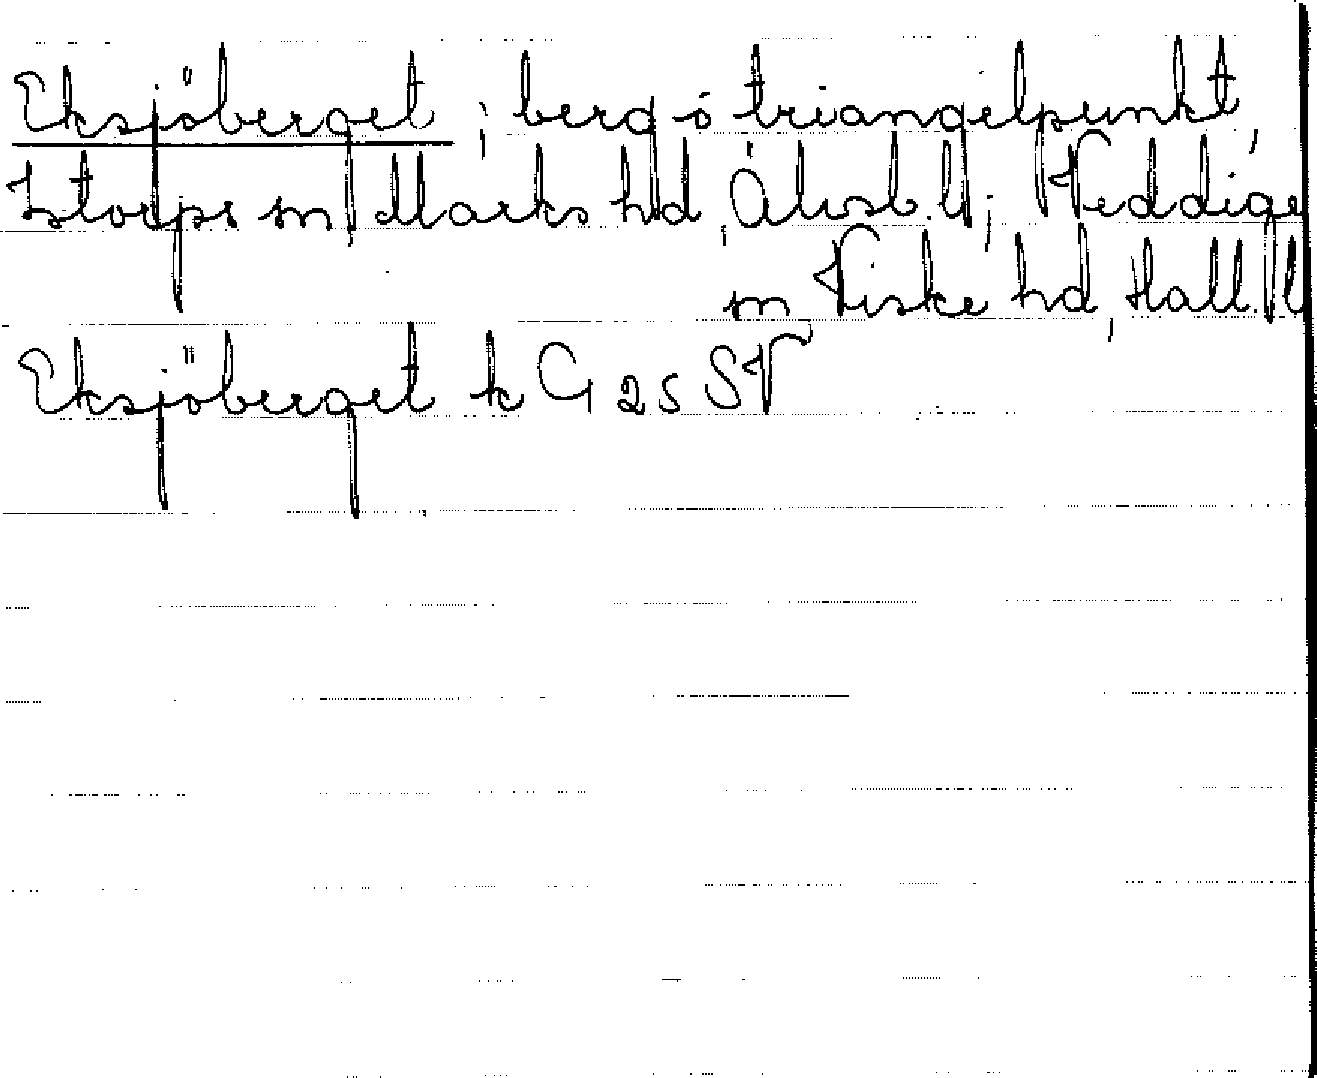 Eksjöberget; berg ö triangelpunkt,
Istorps sn, Marks hd, Älvsb. ll; Veddige
sn Viske hd, Hall. ll
Eksjöberget k G 25 SV